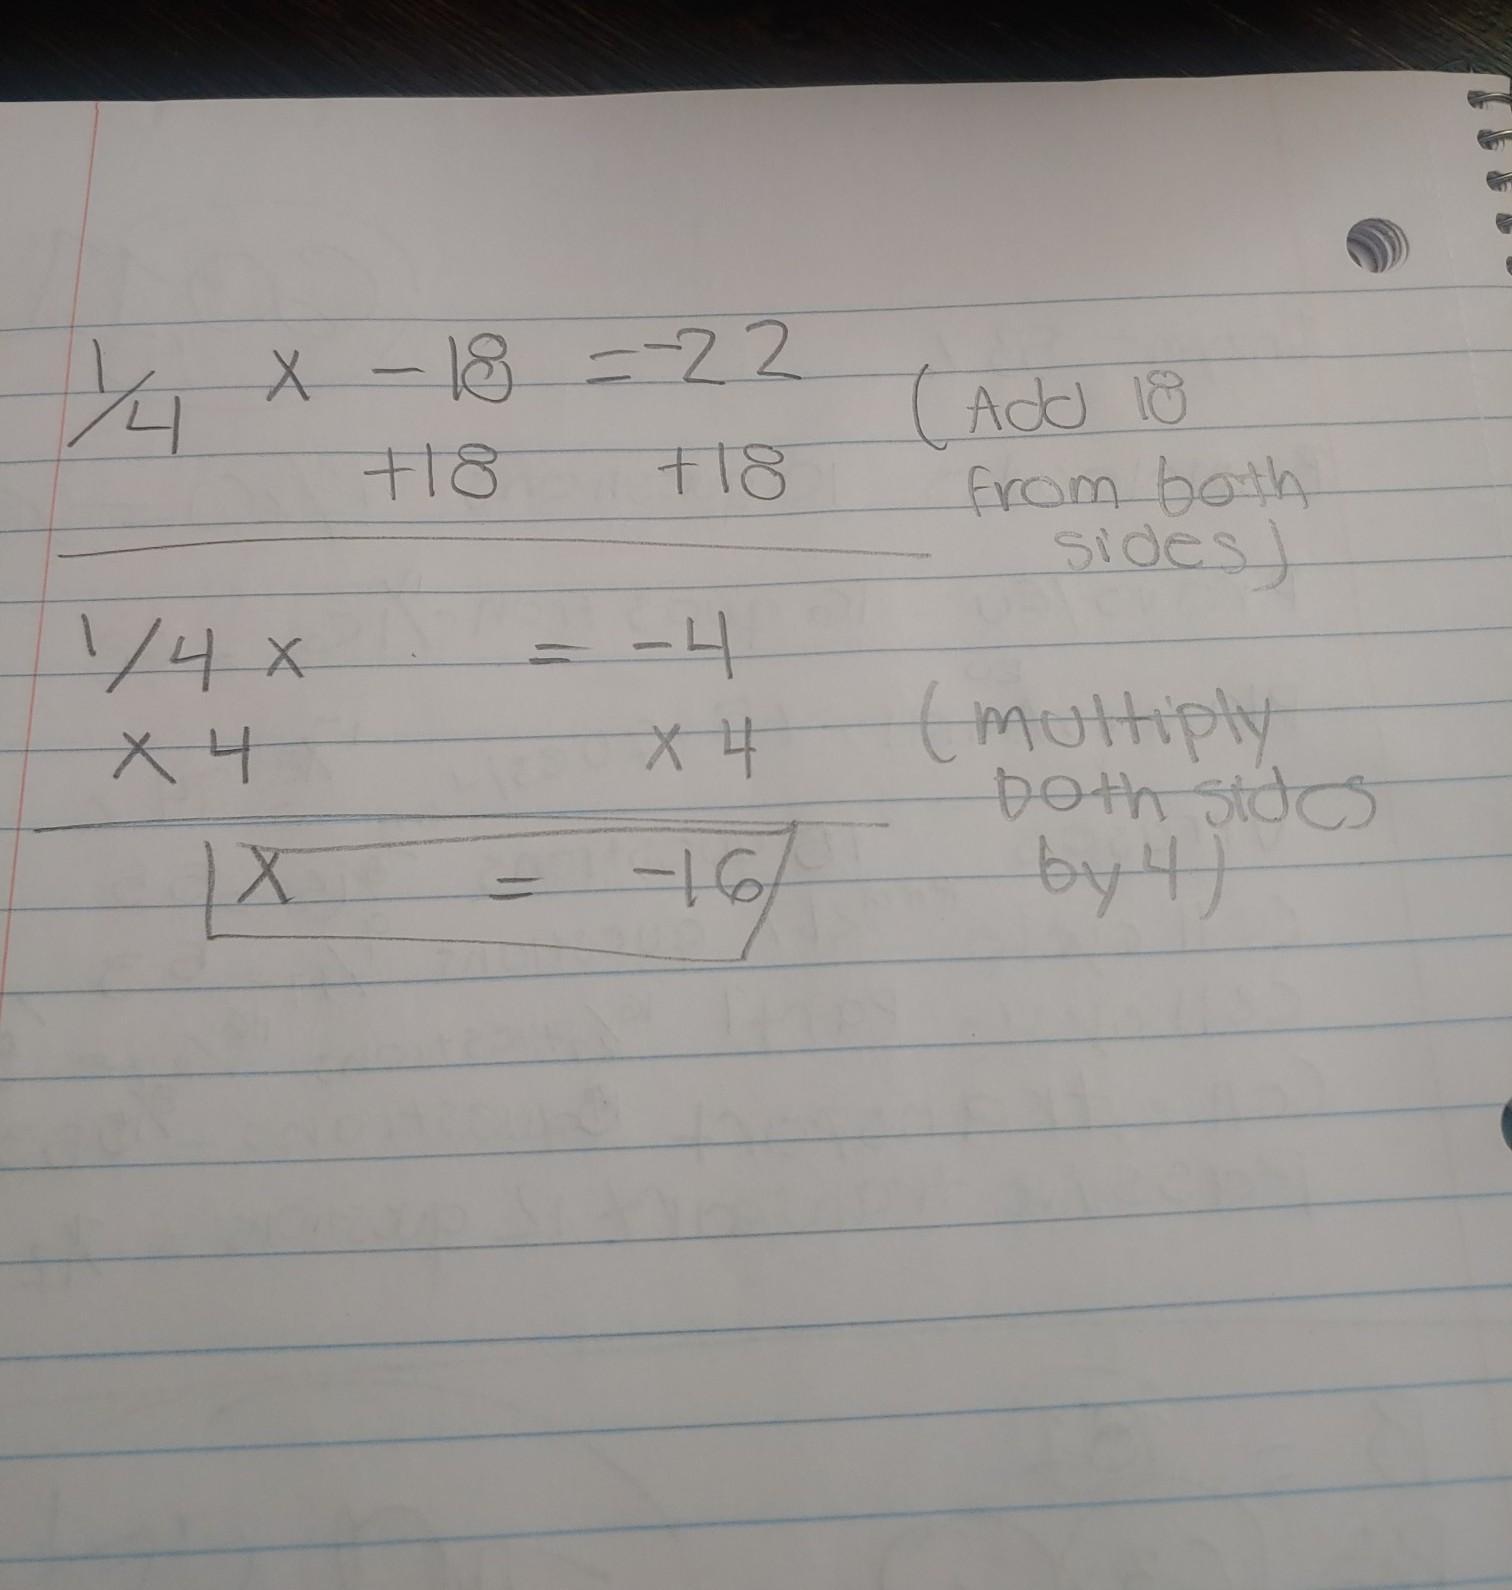 1/4 x - 18 = -22
+18 +18
(Add 18
from both
sides)
1/4 x = -4
x 4 x 4
(multiply
both sides
by 4)
x = -16